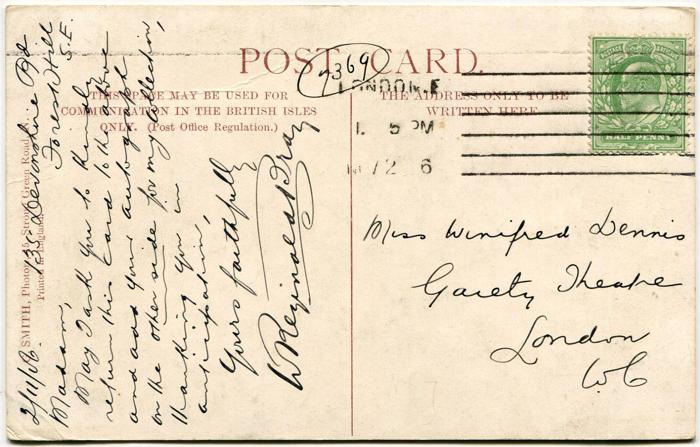 POST CARD.
7369
THIS SPACE MAY BE USED FOR
COMMUNICATION IN THE BRITISH ISLES
ONLY. (Post Office Regulation.)
THE ADDRESS ONLY TO BE
WRITTEN HERE
LONDON.E
5 PM
2 6
POSTAGE
HALF PENNY
SMITH, Photo,
Green Road,
Printed in England.
Devonshire Rd
Forest Hill
S.E.
2/11/06
Madam,
May I ask you to kindly
return this card to the above
and add your autograph
on the other side for my collection,
thanking you in
anticipation,
Yours faithfully
W Reginald Bray
Miss Winifred Dennis
Gaiety Theatre
London
WC